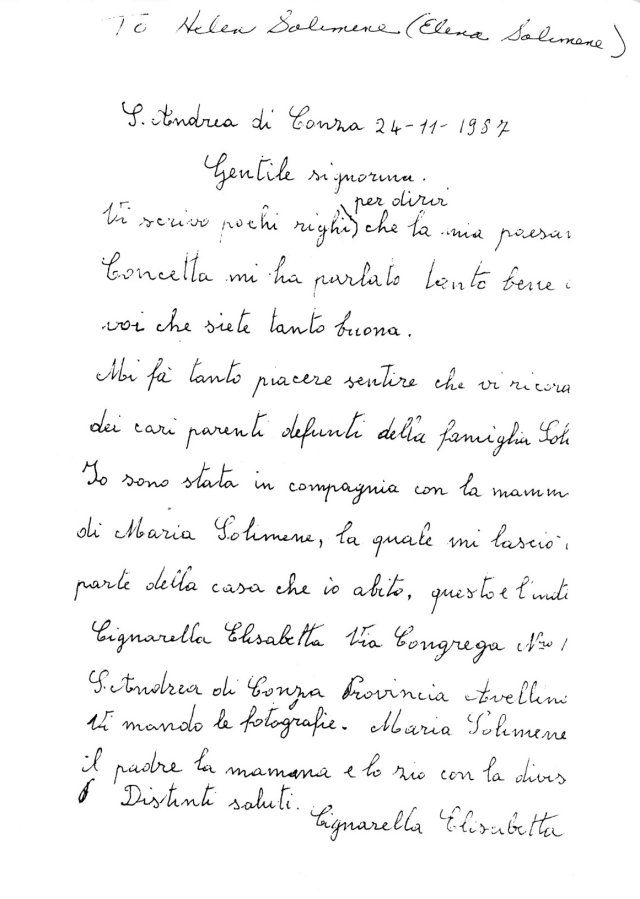 To Helen Solimene (Elena Solimene)
S. Andrea di Conza 24-11-1987
Gentile signorina.
per dirvi
Vi scrivo pochi righi) che la mia paesan
Concetta mi ha parlato tanto bene
voi che siete tanto buona.
Mi fà tanto piacere sentire che vi ricora
dei cari parenti defunti della famiglia Soli
Io sono stata in compagnia con la mamm
di Maria Solimene, la quale mi lasciò
parte della casa che io abito, questo e l'indi
Cignarella Elisabetta Via Congrega Nro 1
S. Andrea di Conza Provincia Avellino
Vi mando le fotografie. Maria Solimene
il padre la mamma e lo zio con la divis
Distinti saluti.
Cignarella Elisabetta